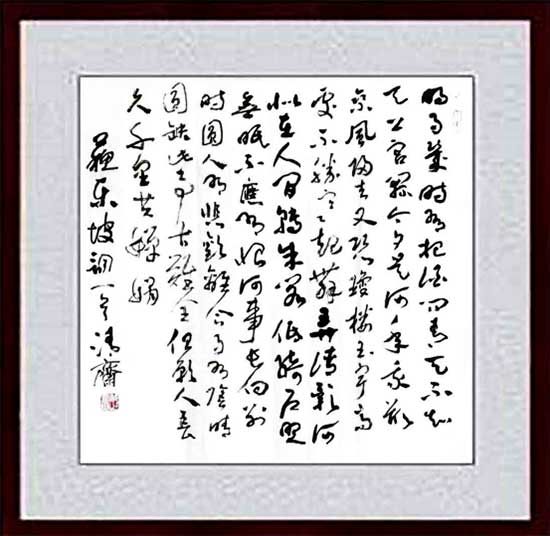 明月幾時有把酒问青天不知
天上宫闕今夕是何年我欲
乘風归去又恐瓊楼玉宇高
處不勝寒起舞弄清影何
似在人间轉朱阁低绮户照
無眠不應有恨何事长向别
時圆人有悲歡離合月有陰晴
圆缺此事古難全但願人长
久千里共嬋娟
蘇东坡詞一首清齋